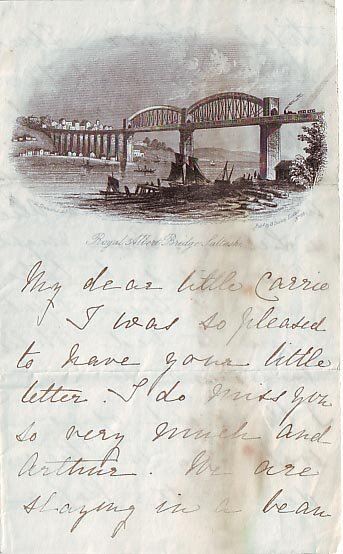 Royal Albert Bridge, Saltash.
My dear little Carrie
I was so pleased
to have your little
letter. I do miss you
so very much and
Arthur. We are
staying in a beau